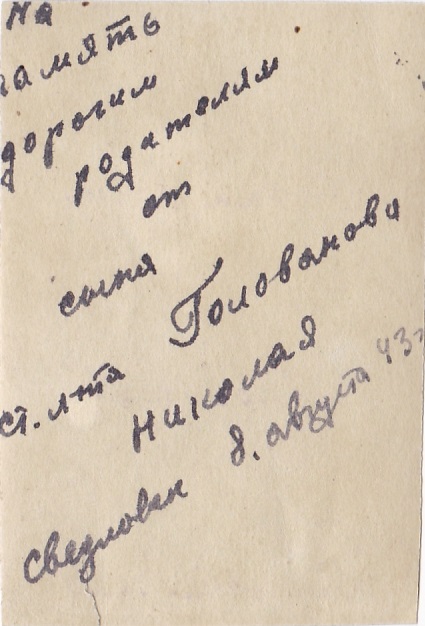 На
память
дорогим
родителям
от
сына
ст. л-та Голованова
Николая
Свердловск 8. августа 43г